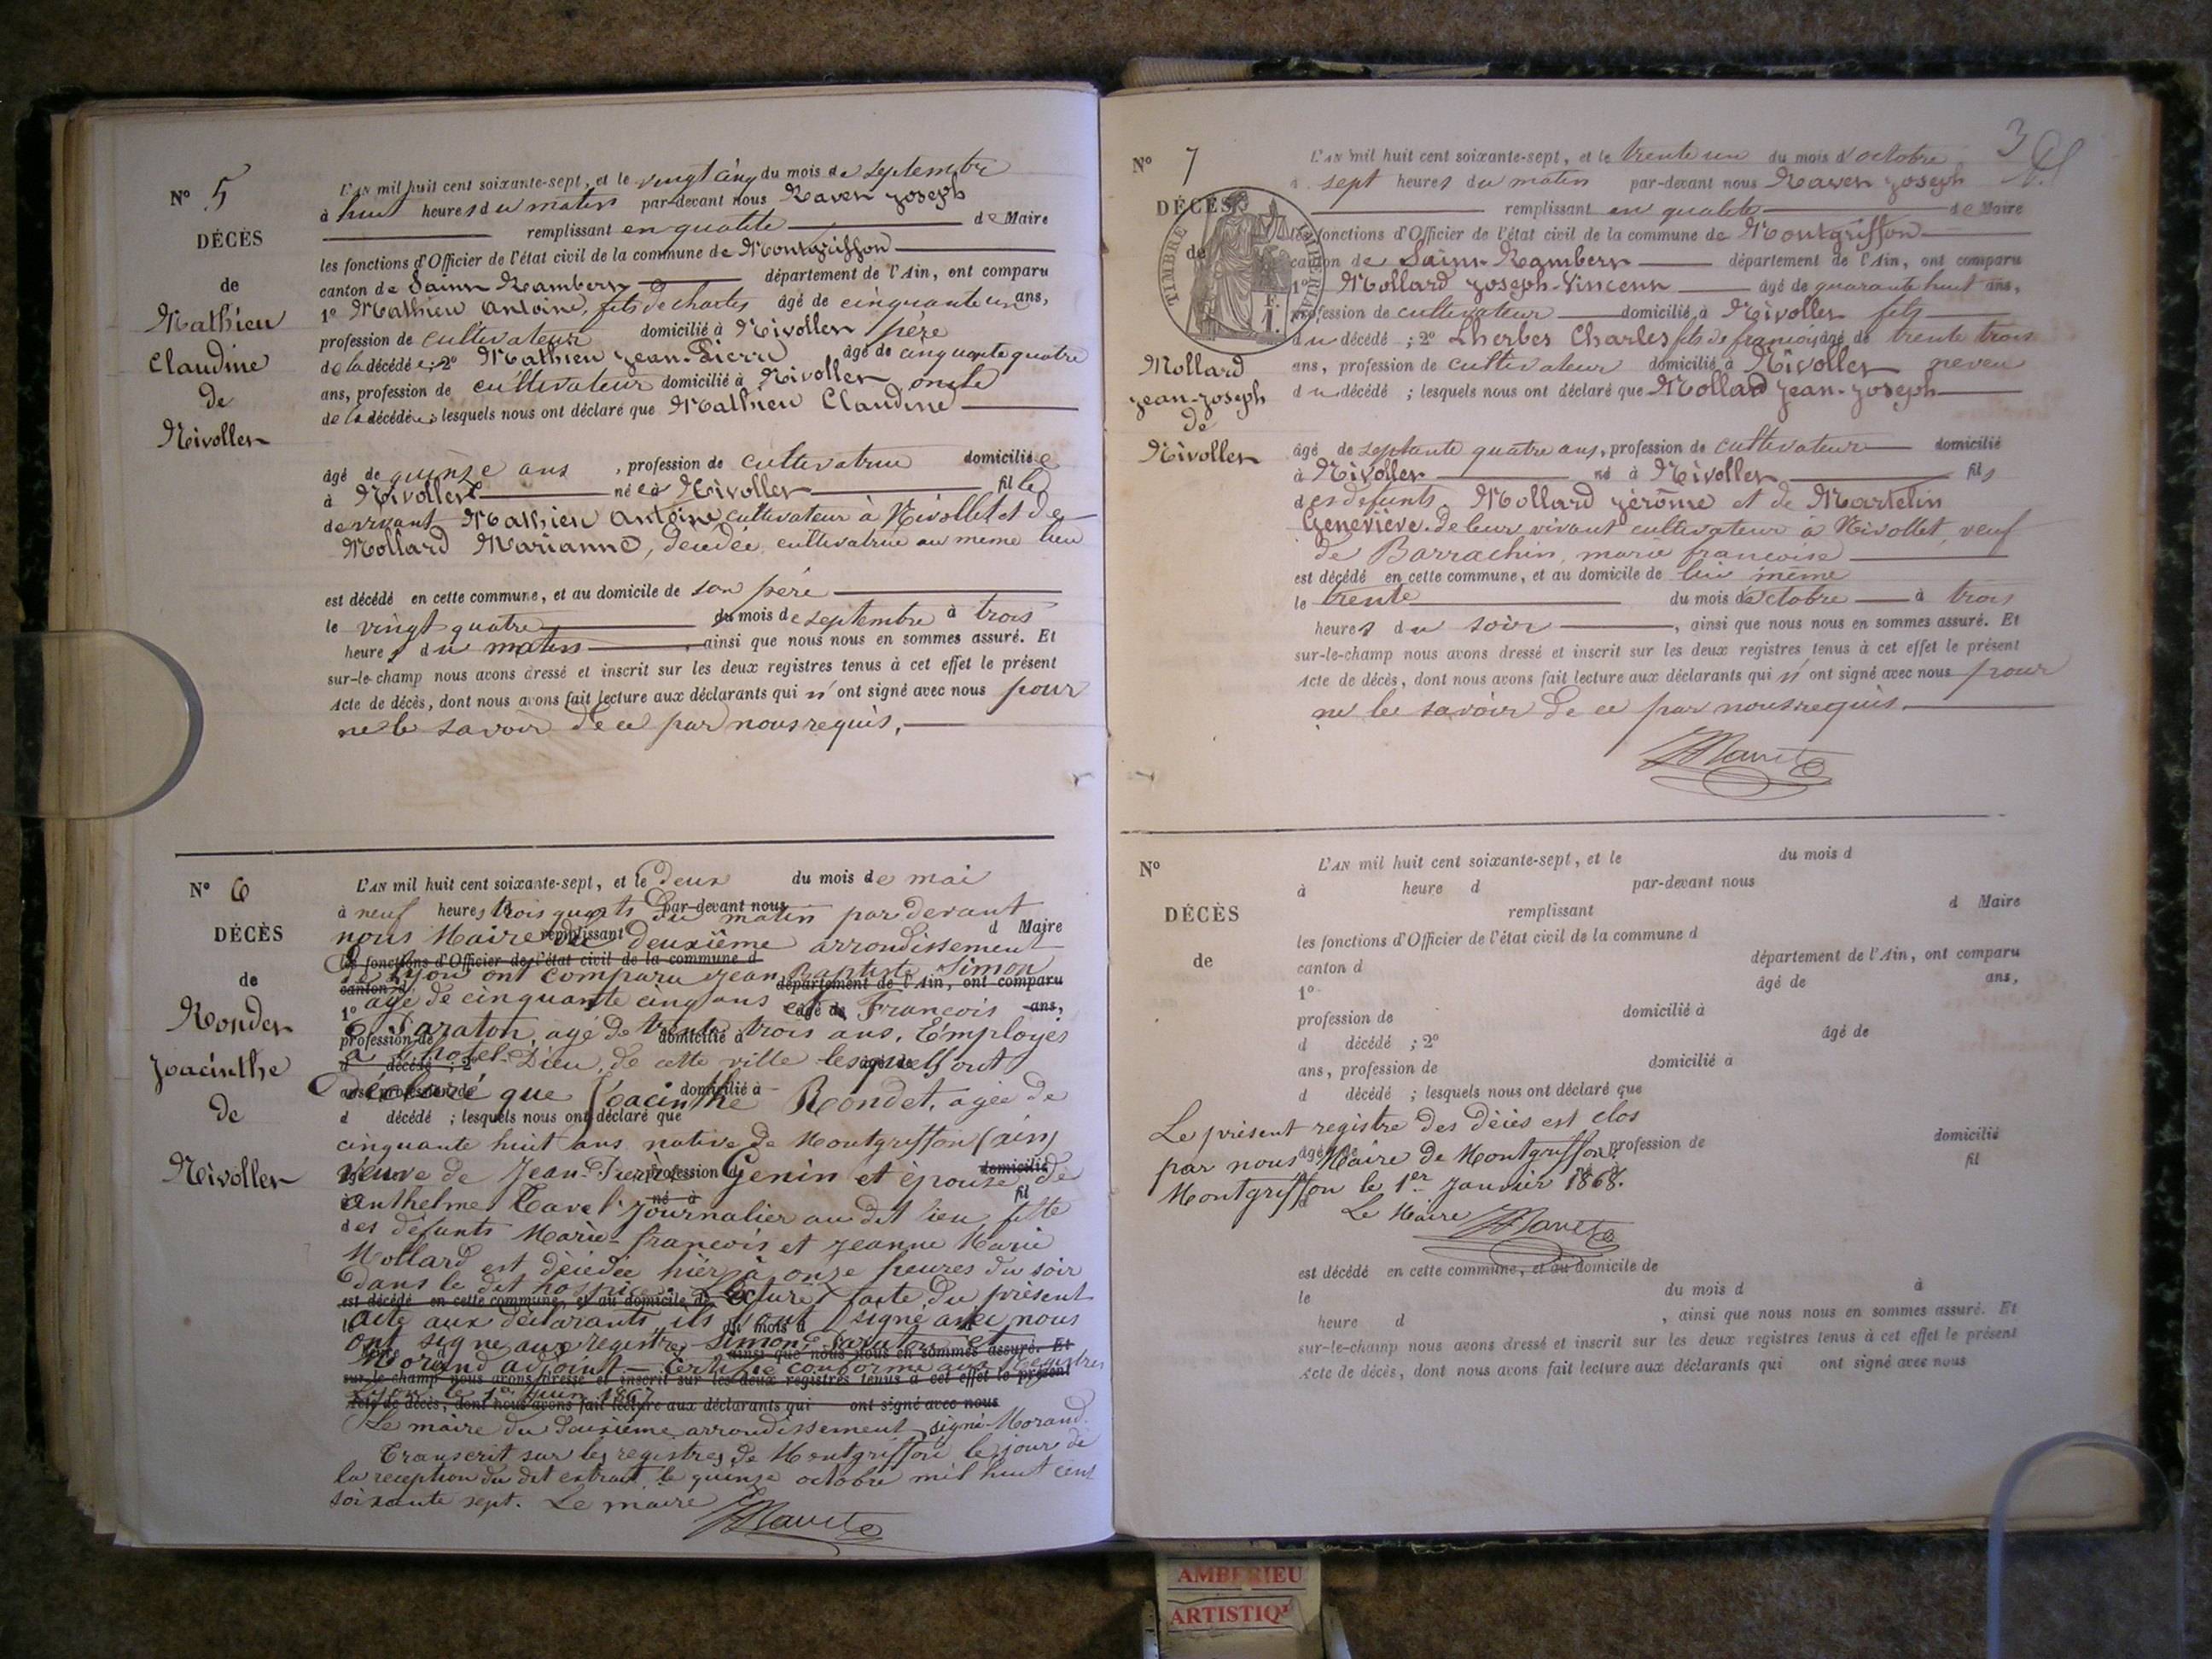 N° 5
DÉCÈS
de
Mathieu
Claudine
de
Nivollet
L'AN mil huit cent soixante-sept, et le vingt cinq du mois de septembre
à huit heures du matin par-devant nous Ravet joseph
remplissant en qualité de Maire
les fonctions d'Officier de l'état civil de la commune de Montgriffon
canton de Saint Rambert département de l'Ain, ont comparu
1° Mathieu Antoine, fils de charles âgé de cinquante un ans,
profession de cultivateur domicilié à Nivollet père
de la décédée ; 2° Mathieu jean-Pierre âgé de cinquante quatre
ans, profession de cultivateur domicilié à Nivollet oncle
de la décédée ; lesquels nous ont déclaré que Mathieu Claudine
âgé de quinze ans , profession de cultivatrice domiciliée
à Nivollet née à Nivollet fille
de vivant Mathieu Antoine cultivateur à Nivollet et de
Mollard Marianne, décédée, cultivatrice au même lieu
est décédé en cette commune, et au domicile de son père
le vingt quatre du mois de septembre à trois
heures du matin , ainsi que nous nous en sommes assuré. Et
sur-le-champ nous avons dressé et inscrit sur les deux registres tenus à cet effet le présent
Acte de décès, dont nous avons fait lecture aux déclarants qui n'ont signé avec nous pour
ne le savoir de ce par nous requis.
N° 6
DÉCÈS
de
Rondet
Jacinthe
de
Nivollet
L'AN mil huit cent soixante-sept, et le deux du mois de mai
à neuf heures trois quarts du par-devant nous matin par devant
nous Maire du remplissant deuxième arrondissement d Maire
les fonctions d'Officier de l'état civil de la commune d
de Lyon ont comparu jean Baptiste Simon
canton d département de l'Ain, ont comparu
1° agé de cinquante cinq ans et âgé de François ans,
Paraton, agé de trente trois ans, Employés
profession de domicilié à
à l'hotel-Dieu, de cette ville lesquels ont
d décédé ; 2° âgé de
déclaré que Jacinthe Rondet, agée de
ans, profession de domicilié à
d décédé ; lesquels nous ont déclaré que
cinquante huit ans native de Montgriffon (ain)
veuve de Jean-Pierre profession d Genin et épouse domicilié de
anthelme Ravet né à journalier au dit lieu, fil fille
des défunts Marie-françois et jeanne Marie
Mollard est décédée hier à onze heures du soir
dans le dit hospice. Lecture faite du présent
est décédé en cette commune, et au domicile de
acte aux déclarants ils l'ont signé avec nous
le du mois d à
ont signé aux registres Simon, Paraton et
heure d ainsi que nous nous en sommes assuré. Et
Morand adjoint - Certifié conforme aux Registres
sur-le-champ nous avons dressé et inscrit sur les deux registres tenus à cet effet le présent
Lyon le 1er juin 1867
Acte de décès, dont nous avons fait lecture aux déclarants qui ont signé avec nous
Le maire du deuxième arrondissement signé Morand.
Transcrit sur les registres de Montgriffon le jour de
la reception du dit extrait le quinze octobre mil huit cent
soixante sept. Le maire
JRavet
3
N° 7
DÉCÈS
de
TIMBRE IMPERIAL
Mollard
jean-joseph
de
Nivollet
L'AN mil huit cent soixante-sept, et le trente un du mois d'octobre
à sept heures du matin par-devant nous Ravet joseph
remplissant en qualité de Maire
les fonctions d'Officier de l'état civil de la commune de Montgriffon
canton de Saint-Rambert département de l'Ain, ont comparu
1° Mollard joseph-Vincent âgé de quarante huit ans,
profession de cultivateur domicilié à Nivollet fils
du décédé ; 2° Lherbet Charles fils de françois âgé de trente trois
ans, profession de cultivateur domicilié à Nivollet neveu
du décédé ; lesquels nous ont déclaré que Mollard jean-joseph
âgé de septante quatre ans, profession de cultivateur domicilié
à Nivollet né à Nivollet fils
des défunts Mollard jérôme et de Martelin
Geneviève. de leur vivant cultivateur à Nivollet, veuf
de Barrachin, marie françoise
est décédé en cette commune, et au domicile de lui même
le trente du mois d'octobre à trois
heures du soir , ainsi que nous nous en sommes assuré. Et
sur-le-champ nous avons dressé et inscrit sur les deux registres tenus à cet effet le présent
Acte de décès, dont nous avons fait lecture aux déclarants qui n'ont signé avec nous pour
ne le savoir de ce par nous requis.
JRavet
N°
DÉCÈS
de
L'AN mil huit cent soixante-sept, et le du mois d
à heure d par-devant nous
remplissant d Maire
les fonctions d'Officier de l'état civil de la commune d
canton d département de l'Ain, ont comparu
1° âgé de ans,
profession de domicilié à
d décédé ; 2° âgé de
ans, profession de domicilié à
d décédé ; lesquels nous ont déclaré que
Le présent registre des décès est clos
âgé de profession de domicilié
par nous Maire de Montgriffon
à né à fil
Montgriffon le 1er Janvier 1868.
d Le Maire JRavet
est décédé en cette commune, et au domicile de
le du mois d à
heure d , ainsi que nous nous en sommes assuré. Et
sur-le-champ nous avons dressé et inscrit sur les deux registres tenus à cet effet le présent
Acte de décès, dont nous avons fait lecture aux déclarants qui ont signé avec nous
AMBERIEU
ARTISTIQ